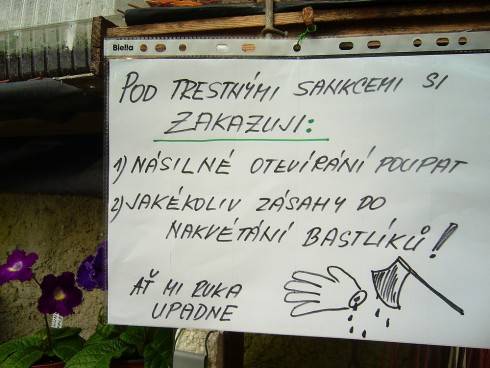 Biella
POD TRESTNÝMI SANKCEMI SI
ZAKAZUJI:
1) NÁSILNÉ OTEVÍRÁNÍ POUPAT
2) JAKÉKOLIV ZÁSAHY DO
NAKVÉTÁNÍ BASTLÍKŮ!
AŤ MI RUKA
UPADNE